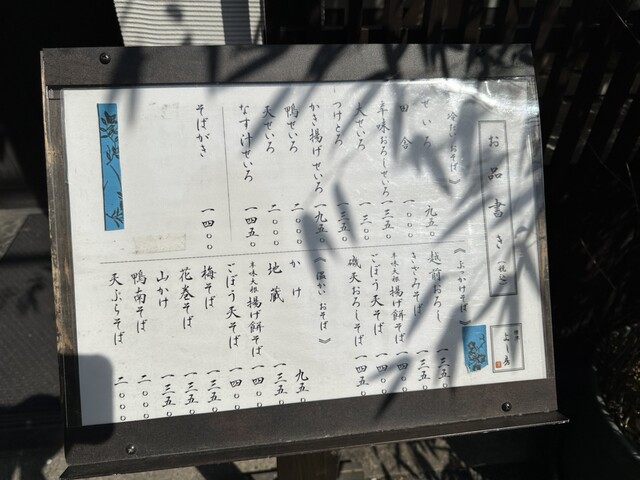 お品書き(税込)
《冷たいおそば》
せいろ 九五〇
田舎 一〇〇〇
辛味おろしせいろ 一三五〇
大せいろ 一三〇〇
つけとろ 一三五〇
かき揚げせいろ 一九五〇
鴨せいろ 二〇〇〇
天せいろ 二〇〇〇
なす汁せいろ 一四五〇
そばがき 一四〇〇
《ぶっかけそば》
越前おろし 一三五〇
きざみそば 一三五〇
辛味大根揚げ餅そば 一四〇〇
ごぼう天そば 一四〇〇
磯天おろしそば 一四五〇
《温かいおそば》
かけ 九五〇
地蔵 一三五〇
辛味大根揚げ餅そば 一四〇〇
ごぼう天そば 一四〇〇
梅そば 一三五〇
花巻そば 一三五〇
山かけ 一三五〇
鴨南そば 二〇〇〇
天ぷらそば 二〇〇〇